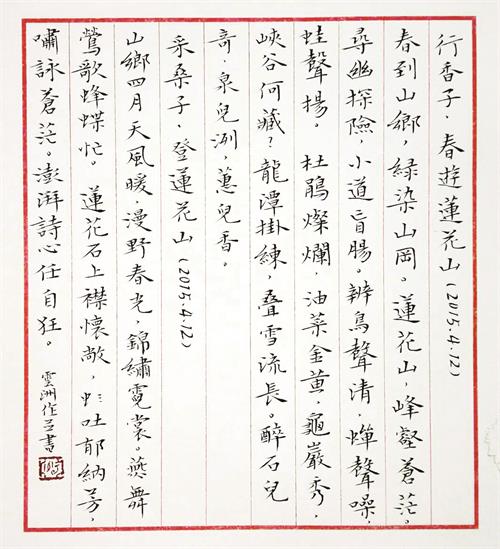 行香子·春遊蓮花山(2015.4.12)
春到山鄉,緑染山岡。蓮花山,峰壑蒼茫。
尋幽探險,小道盲腸。辨鳥聲清,蟬聲噪,
蛙聲揚。 杜鵑燦爛,油菜金黄,龜巖秀,
峽谷何藏?龍潭掛練,叠雪流長。醉石兒
奇,泉兒冽,蕙兒香。
采桑子·登蓮花山(2015.4.12)
山鄉四月天風暖,漫野春光,錦繡霓裳。燕舞
鶯歌蜂蝶忙。 蓮花石上襟懷敞,吐郁納芳,
嘯詠蒼茫。澎湃詩心任自狂。 雲洲作并書